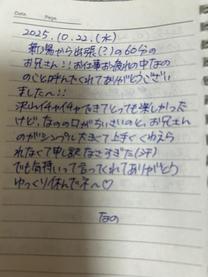 Date Page
2025.10.22.(水)
新潟から出張(?)の60分の
お兄さん!!お仕事お疲れの中なの
のこと呼んでくれてありがとうござい
ました〜!!
沢山イチャイチャできてとっても楽しかった
けど、なのの口がちいさいのと、お兄さん
のがシンプル大きくて上手くくわえら
れなくて申し訳なさすぎた(汗)
でも気持いって言ってくれてありがとう
ゆっくり休んでネ〜♡
なの